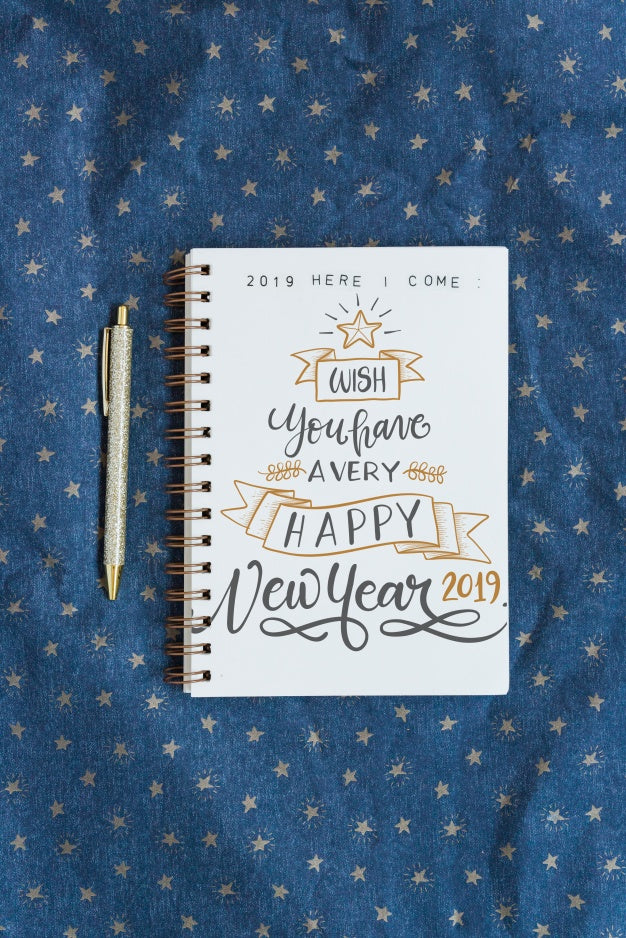 2019 HERE I COME :
WISH
You have
A VERY
HAPPY
New Year 2019.